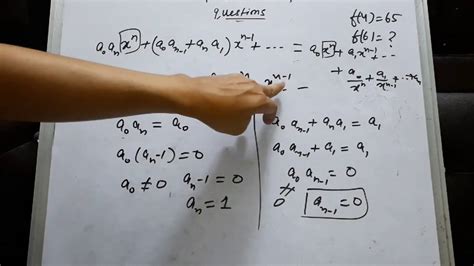 questions
f(4)=65
f(6)=?
a₀aₙxⁿ+(a₀aₙ₋₁+aₙa₁)xⁿ⁻¹+⋯=a₀xⁿ+a₁xⁿ⁻¹+⋯
+a₀/xⁿ+a₁/xⁿ⁻¹+⋯
xⁿ⁻¹
a₀aₙ=a₀
a₀(aₙ-1)=0
a₀≠0 aₙ-1=0
aₙ=1
a₀aₙ₋₁+aₙa₁=a₁
a₀aₙ₋₁+a₁=a₁
a₀aₙ₋₁=0
0 aₙ₋₁=0